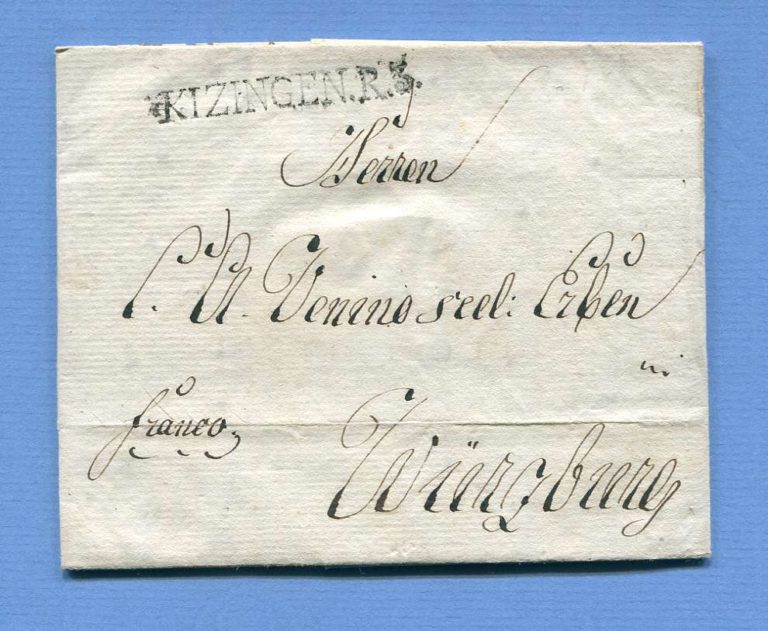 KIZINGEN.R.3.
Herren
C. A. Venino seel: Erben
in
franco.
Würzburg